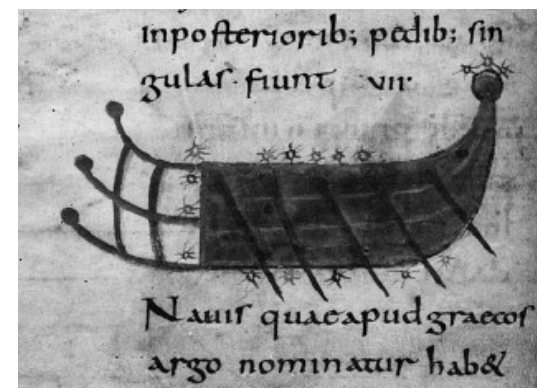 inposteriorib; pedib; sin
gulas. fiunt vii.
Navis quae apud graecos
argo nominatur hab&